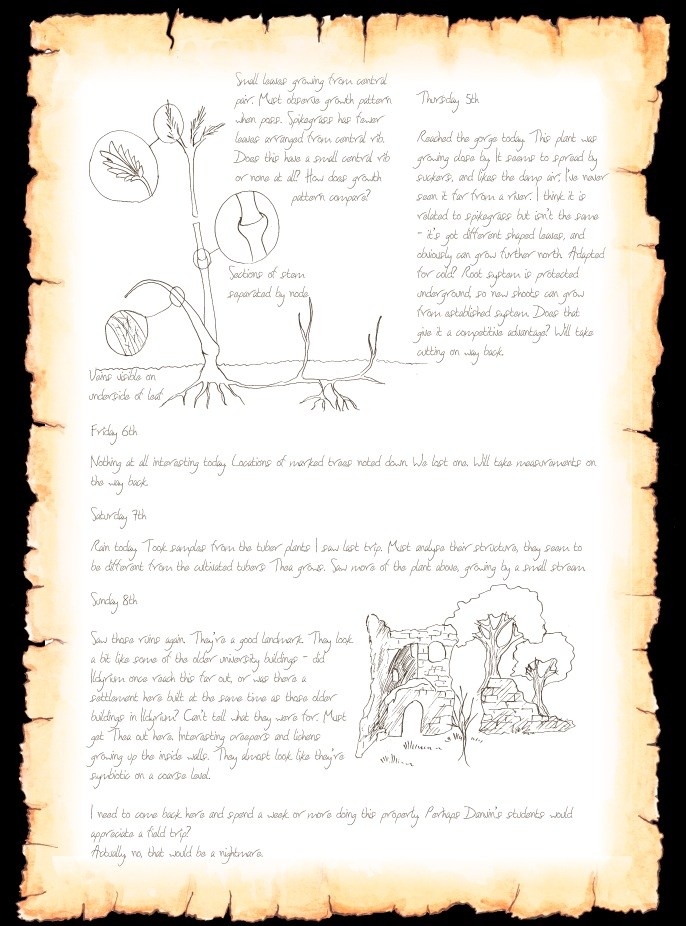 Small leaves growing from central
pair. Must observe growth pattern
when poss. Spikegrass has fewer
leaves arranged from central rib.
Does this have a small central rib
or none at all? How does growth
pattern compare?
Sections of stem
separated by node
Veins visible on
underside of leaf
Thursday 5th
Reached the gorge today. This plant was
growing close by. It seems to spread by
suckers, and likes the damp air. I've never
seen it far from a river. I think it is
related to spikegrass but isn't the same
- it's got different shaped leaves, and
obviously can grow further north. Adapted
for cold? Root system is protected
underground, so new shoots can grow
from established system. Does that
give it a competitive advantage? Will take
cutting on way back.
Friday 6th
Nothing at all interesting today. Locations of marked trees noted down. We lost one. Will take measurements on
the way back.
Saturday 7th
Rain today. Took samples from the tuber plants I saw last trip. Must analyse their structure, they seem to
be different from the cultivated tubers Thea grows. Saw more of the plant above, growing by a small stream.
Sunday 8th
Saw those ruins again. They're a good landmark. They look
a bit like some of the older university buildings - did
Ildyrium once reach this far out, or was there a
settlement here built at the same time as those older
buildings in Ildyrium? Can't tell what they were for. Must
get Thea out here. Interesting creepers and lichens
growing up the inside walls. They almost look like they're
symbiotic on a coarse level.
I need to come back here and spend a week or more doing this properly. Perhaps Darwin's students would
appreciate a field trip?
Actually no, that would be a nightmare.